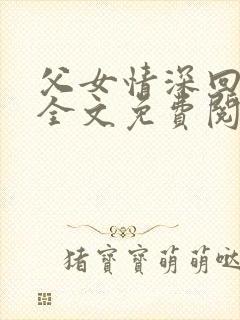 父女情深回
全文免費閱
猪寶寶萌萌噠